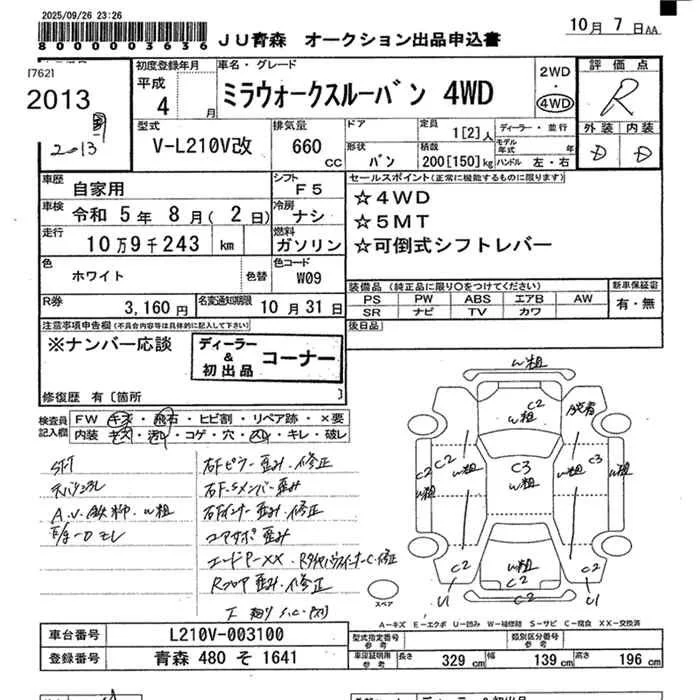 2025/09/26 23:26
8000003636
JU青森 オークション出品申込書
10月 7日AA
[762]
2013
2013
初度登録年月
平成
4 月
車名・グレード
ミラウォークスルーバン 4WD
2WD
4WD
評価点
R
外装 内装
D D
型式
V-L210V改
排気量
660 cc
ドア
形状
バン
定員
1[2]人
積載
200[150]kg
ディーラー・並行
モデル年式 年
ハンドル 左・右
車歴
自家用
シフト
F5
車検
令和 5年 8月(2日)
冷房
ナシ
走行
10万9千243 km
燃料
ガソリン
色
ホワイト
色替
色コード
W09
R券
3,160円
名変通知期限
10月31日
セールスポイント(正常に機能するものに限ります)
☆4WD
☆5MT
☆可倒式シフトレバー
装備品(純正品に限り○をつけてください)
PS PW ABS エアB AW
SR ナビ TV カワ
新車保証書
有・無
後日品
注意事項申告欄(不具合内容等は具体的に記入して下さい)
※ナンバー応談
ディーラー & 初出品 コーナー
修復歴 有〔箇所 〕
検査員記入欄
FW キズ・飛石・ヒビ割・リペア跡・×要
内装 キズ・汚れ・コゲ・穴・凹・キレ・破レ
右Fピラー歪み・修正
右F.Sメンバー歪み
右Fインナー歪み・修正
コアサポ歪み
Rフロア歪み・修正
W粗
C2
W粗
脱着
C2 C2 W粗
W粗
C3
W粗
W粗 C3
W粗
C2
W粗
C2
C2
C2
U1
U1
スペア
A−キズ E−エクボ U−凹み W−補修跡 S−サビ C−腐食 XX−交換済
車台番号
L210V-003100
登録番号
青森 480 そ 1641
型式指定番号 参考
類別区分番号 参考
車庫証明用参考
長さ 329 cm
幅 139 cm
高さ 196 cm